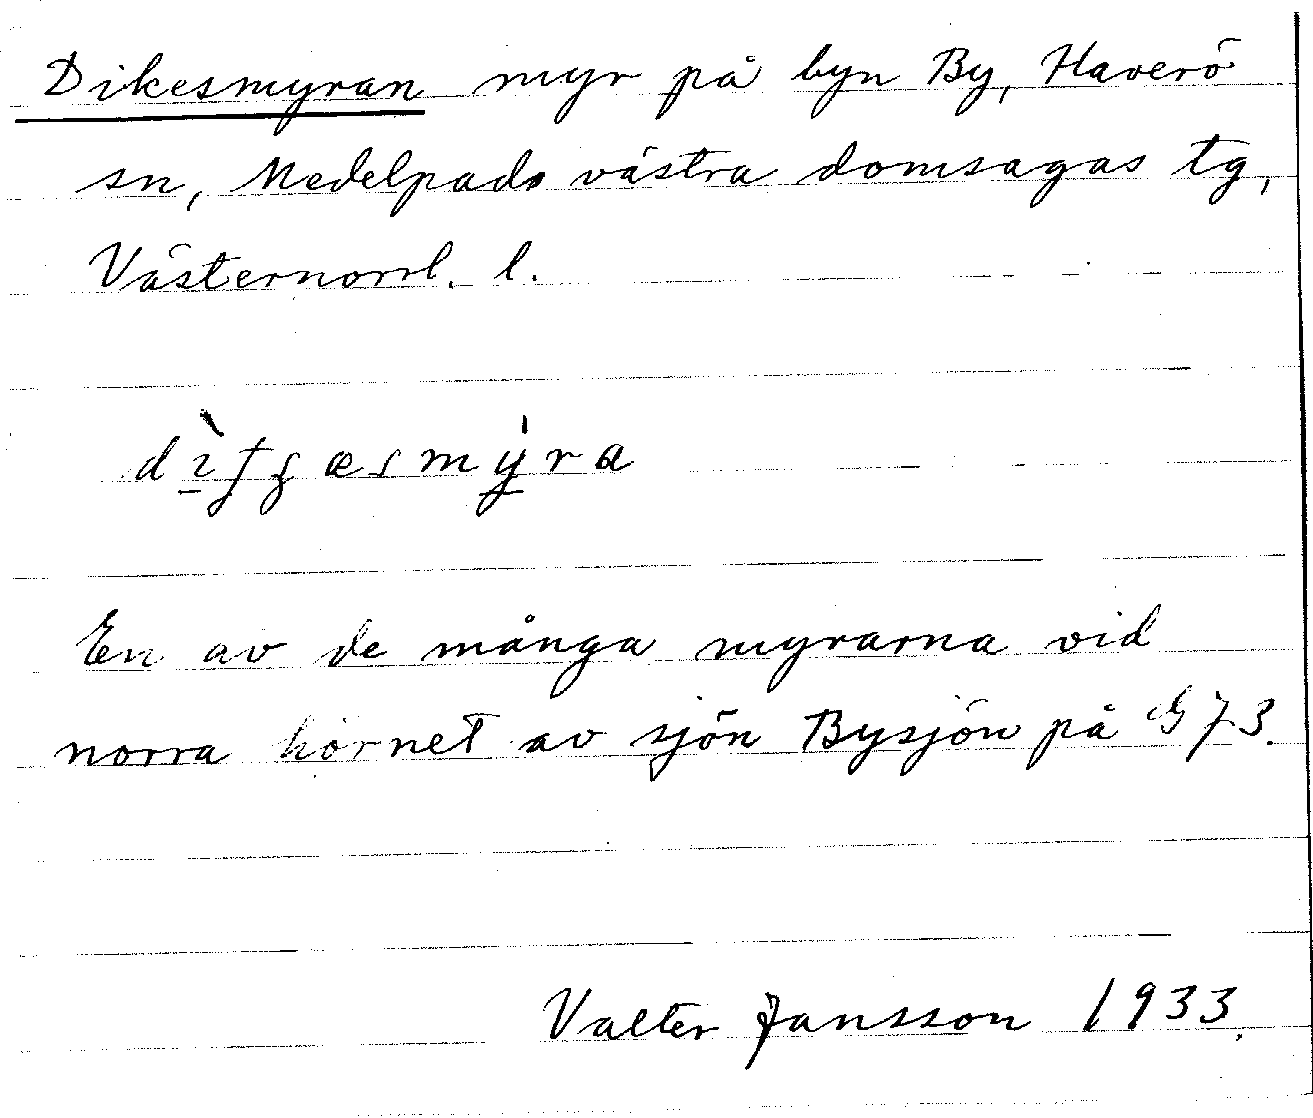 Dikesmyran myr på byn By, Haverö
sn, Medelpads västra domsagas tg,
Västernorrl. l.
En av de många myrarna vid
norra hörnet av sjön Bysjön på G 73.
Valter Jansson 1933.